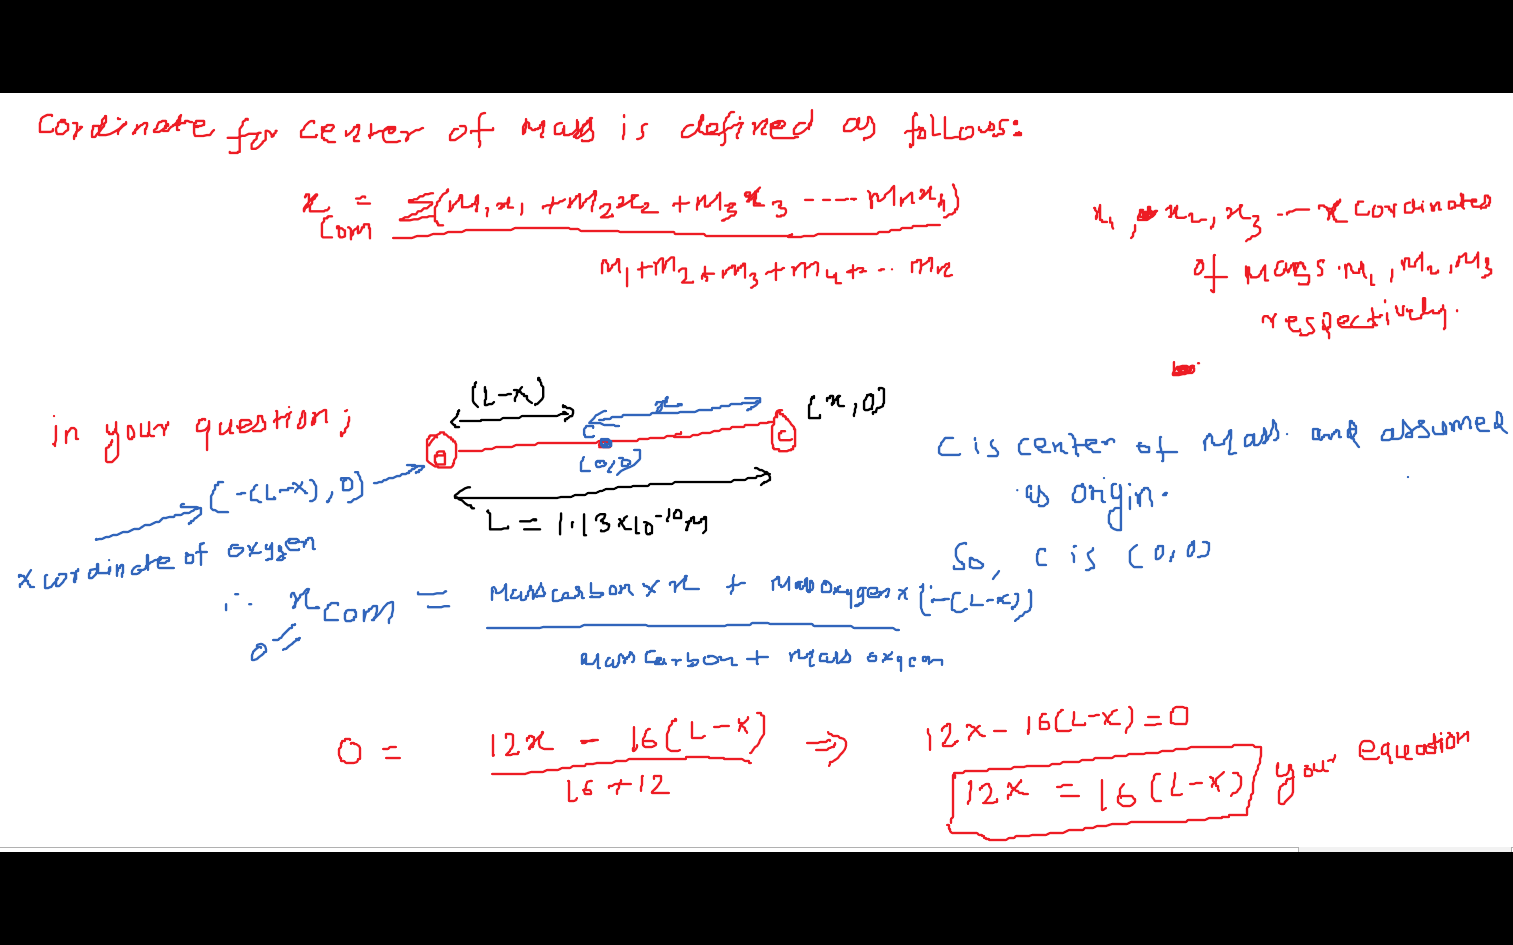 Cordinate for center of mass is defined as follows:
x com = Σ(m1x1 + m2x2 + m3x3 ---- mnxn)
m1+m2+m3+m4+-.. mn
x1, x2, x3 --- x cordinates
of mass m1, m2, m3
respectively.
in your question;
(L-x)
x
(x,0)
C
o
c
(0,0)
(-(L-x),0)
L = 1.13×10^-10 m
C is center of mass. and assumed
as origin.
So, C is (0,0)
x cordinate of oxygen
∴ x com = Mass carbon × x + Mass oxygen × (-(L-x))
0 =
Mass carbon + Mass oxygen
0 = 12x - 16(L-x) ⇒ 12x - 16(L-x) = 0
16+12
12x = 16(L-x) your equation